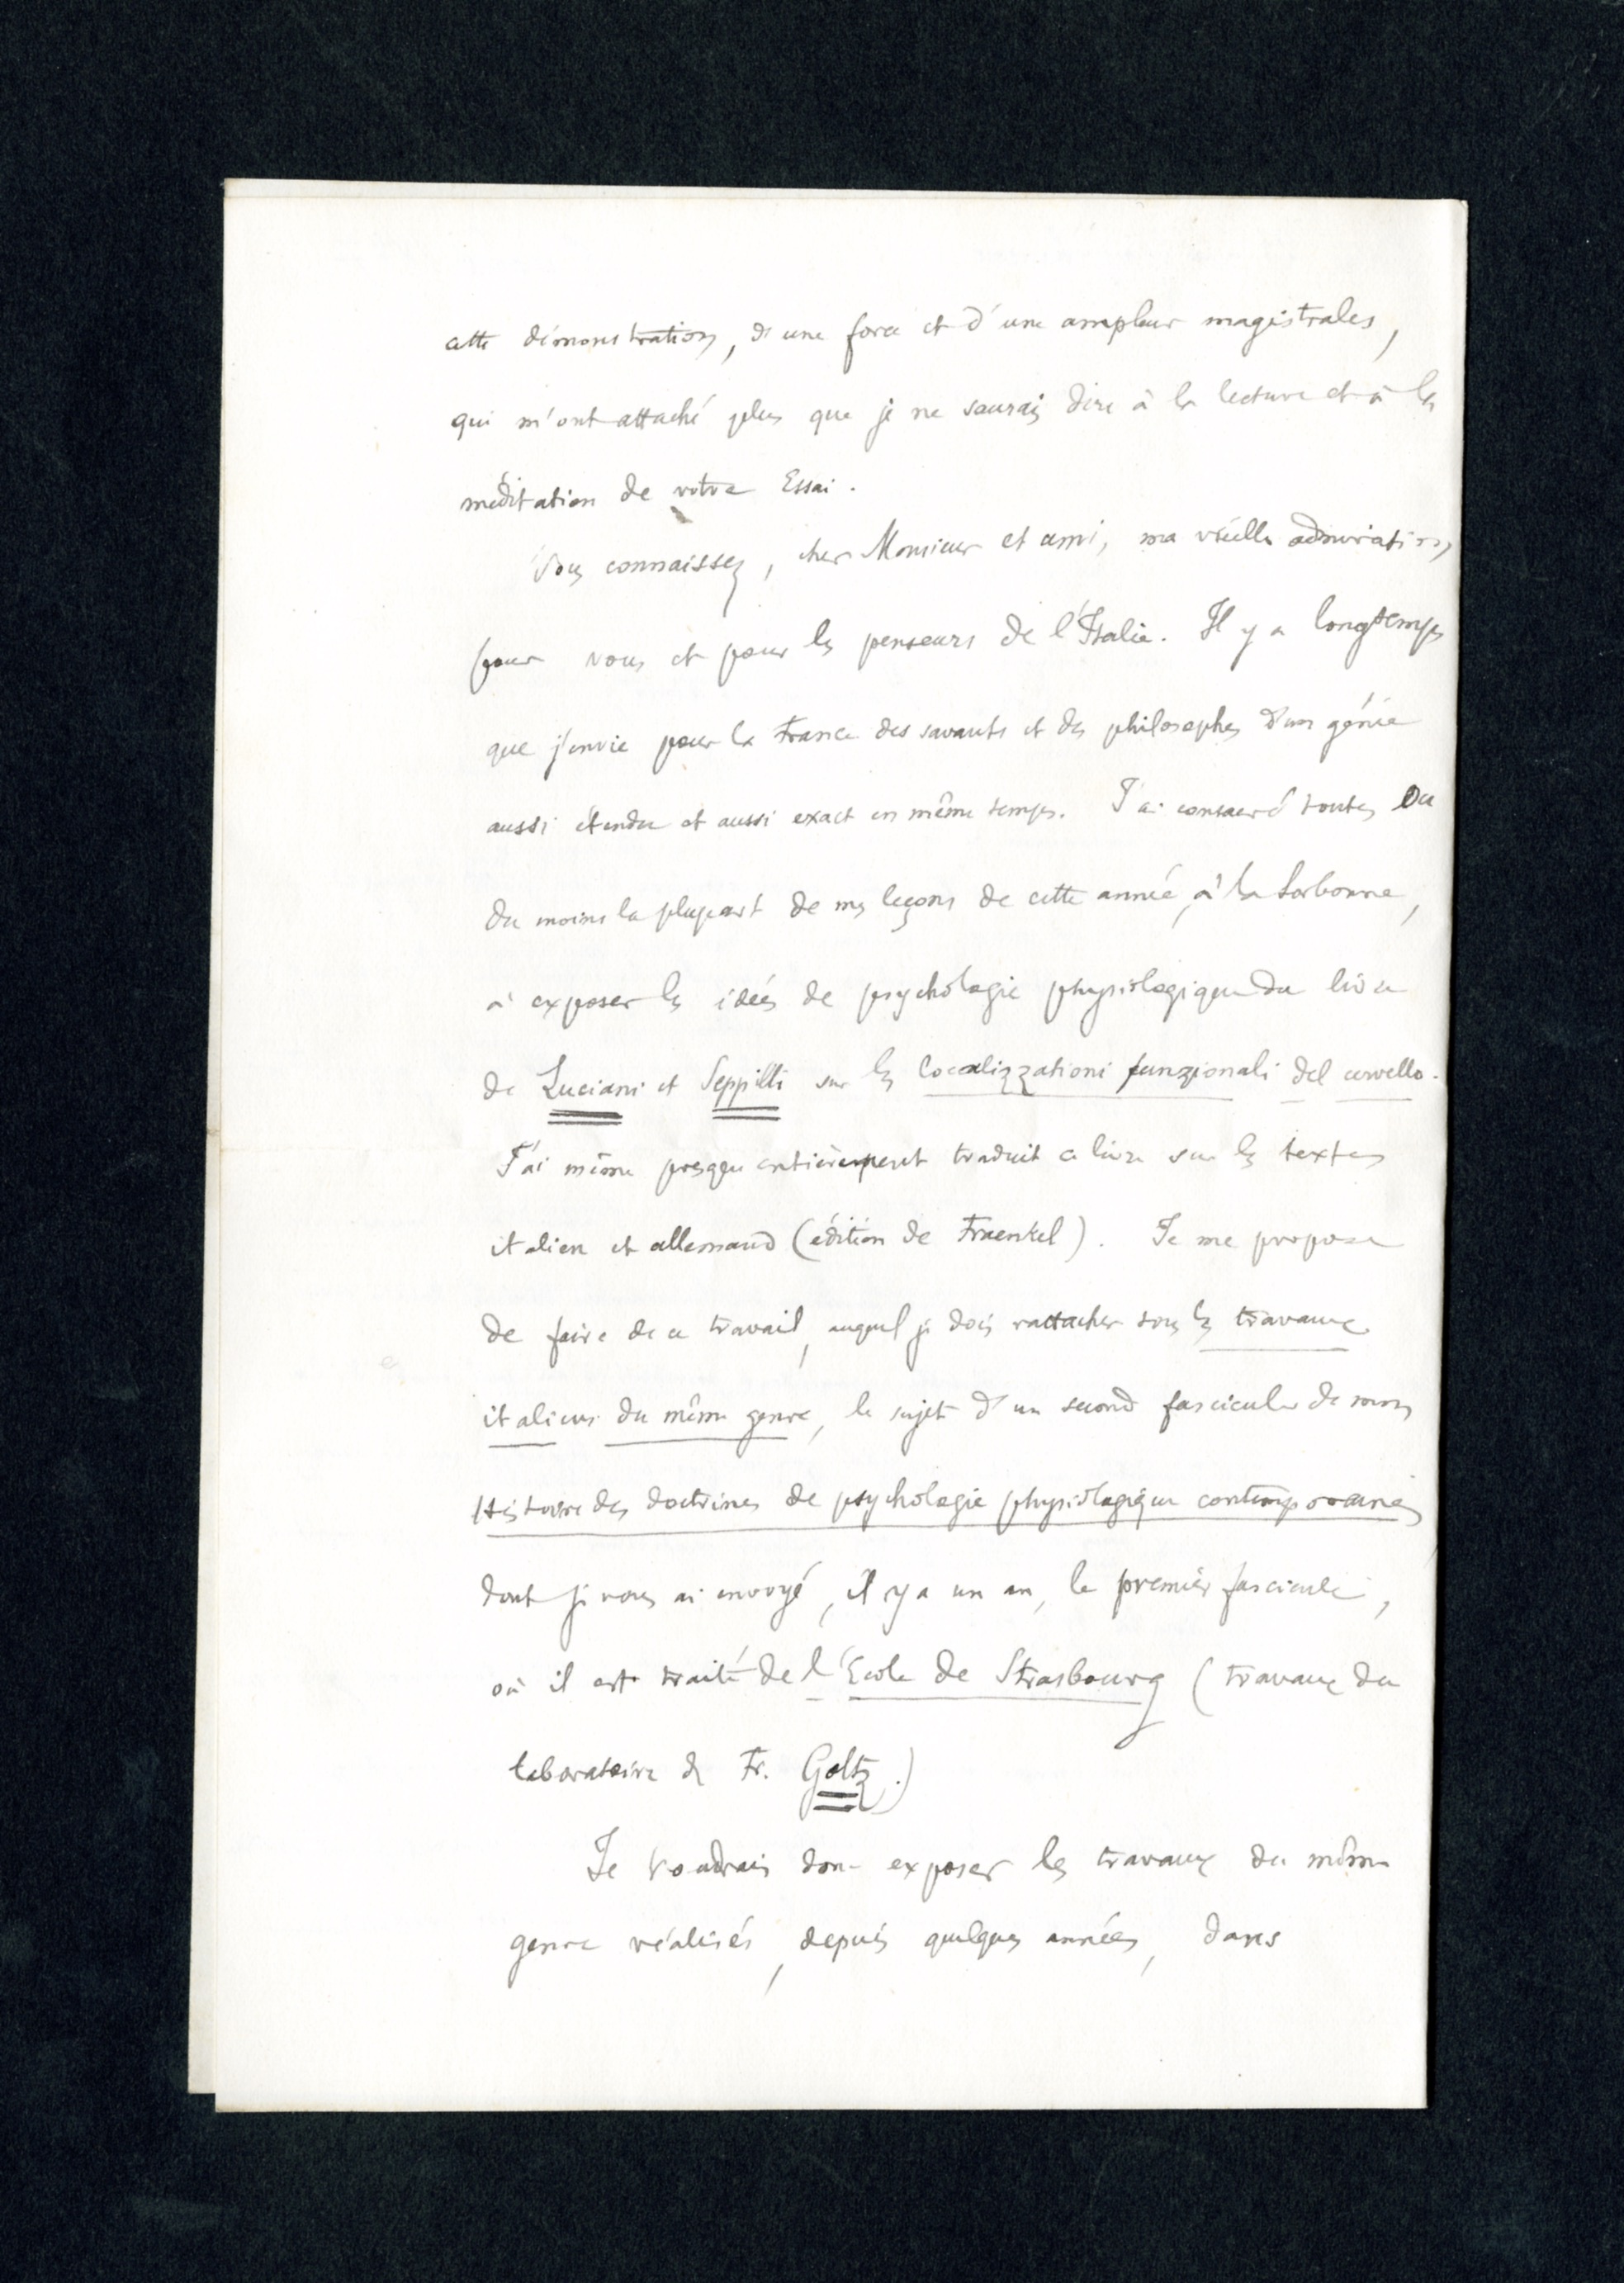 cette démonstration, d'une force et d'une ampleur magistrales,
qui m'ont attaché plus que je ne saurais dire à la lecture et à la
méditation de votre Essai.
Vous connaissez, cher Monsieur et ami, ma vieille admiration
pour vous et pour les penseurs de l'Italie. Il y a longtemps
que j'envie pour la France des savants et des philosophes d'un génie
aussi étendu et aussi exact en même temps. J'ai consacré toutes ou
du moins la plupart de mes leçons de cette année, à la Sorbonne,
à exposer les idées de psychologie physiologique du livre
de Luciani et Seppilli sur les Localizzationi funzionali del cervello.
J'ai même presque entièrement traduit ce livre sur les textes
italien et allemand (édition de Fraenkel). Je me propose
de faire de ce travail, auquel je dois rattacher tous les travaux
italiens du même genre, le sujet d'un second fascicule de mon
Histoire des doctrines de psychologie physiologique contemporaines
dont je vous ai envoyé, il y a un an, le premier fascicule,
où il est traité de l'Ecole de Strasbourg (travaux du
laboratoire de Fr. Goltz.)
Je voudrais donc exposer les travaux du même
genre réalisés, depuis quelques années, dans